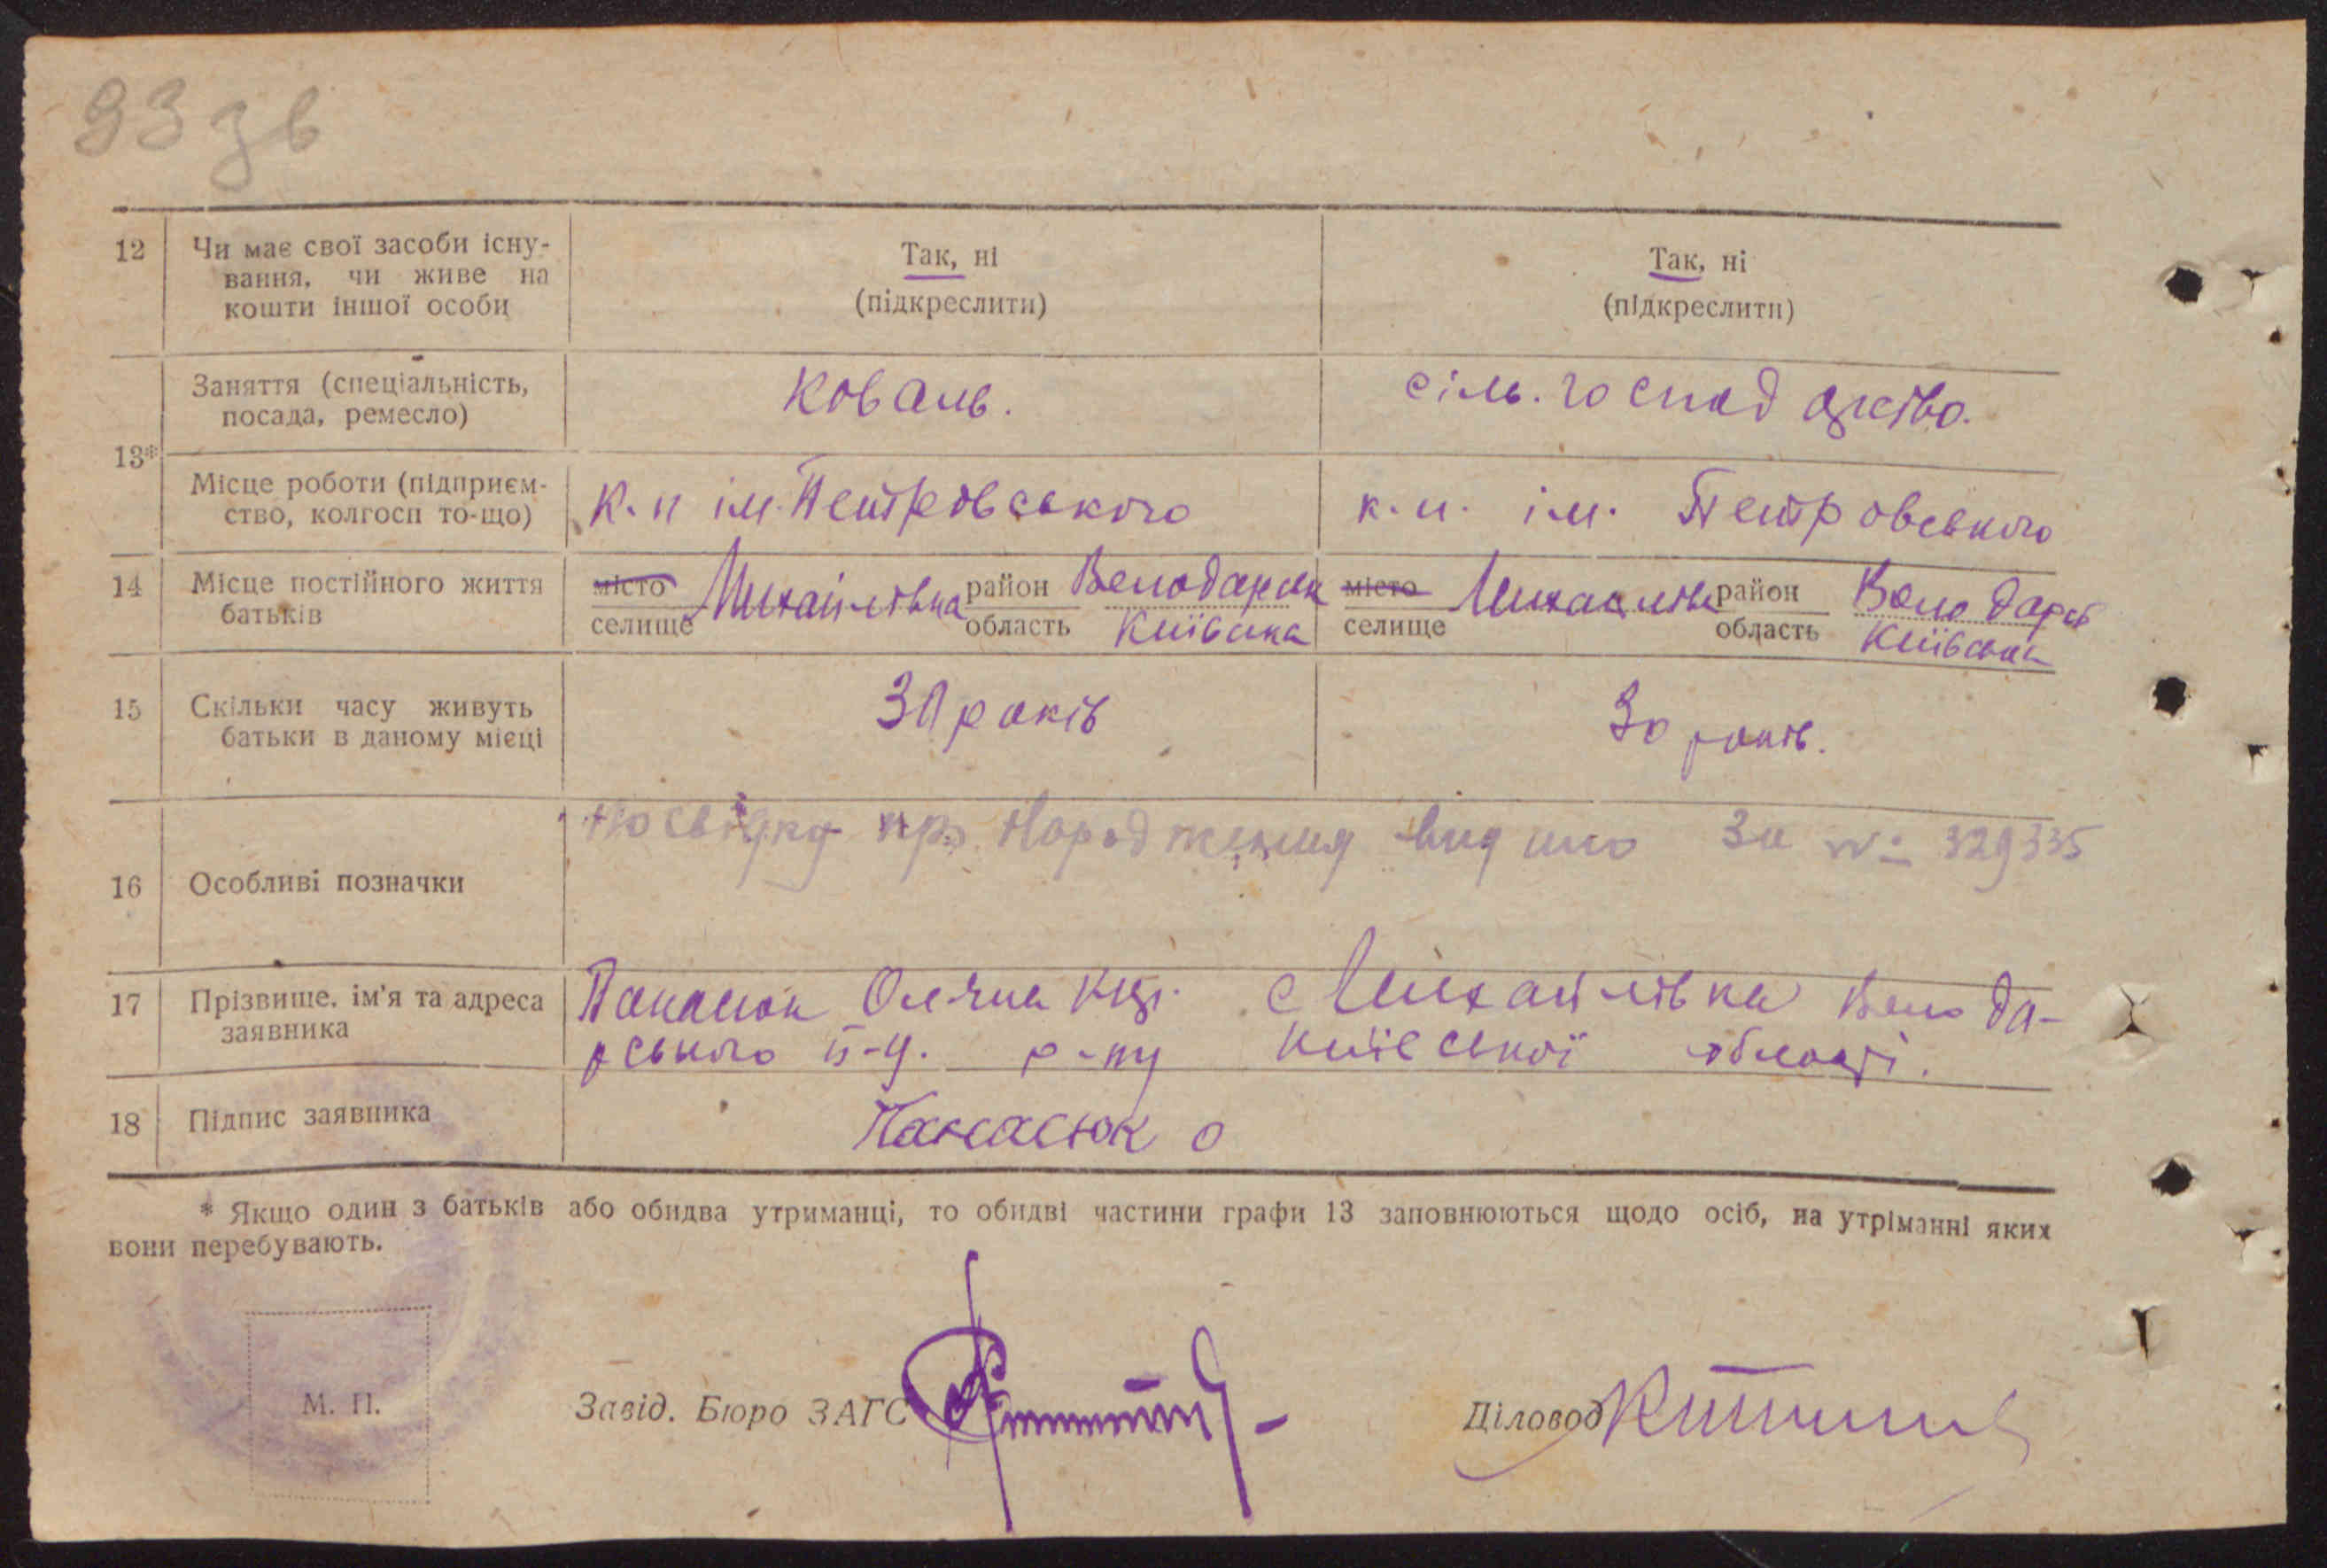 93 зв
12 Чи має свої засоби існу- Так, ні Так, ні
вання, чи живе на (підкреслити) (підкреслити)
кошти іншої особи
13*
Заняття (спеціальність, Коваль. сіль. господарство.
посада, ремесло)
Місце роботи (підприєм- к.п ім. Петровського к.п. ім. Петровського
ство, колгосп то-що)
14 Місце постійного життя місто Михайлівка район Володарськ місто Михайлівка район Володарсь
батьків селище область Київська селище область Київська
15 Скільки часу живуть 30 років 30 років.
батьки в даному місці
16 Особливі позначки Посвідку про народження видано за № 329335
17 Прізвище, ім'я та адреса Панасюк Оляна с Михайлівка Вολοда-
заявника рського р-ну Київської області.
18 Підпис заявника Панасюк О
* Якщо один з батьків або обидва утриманці, то обидві частини графи 13 заповнюються щодо осіб, на утріманні яких
вони перебувають.
М. П. Завід. Бюро ЗАГС Діловод